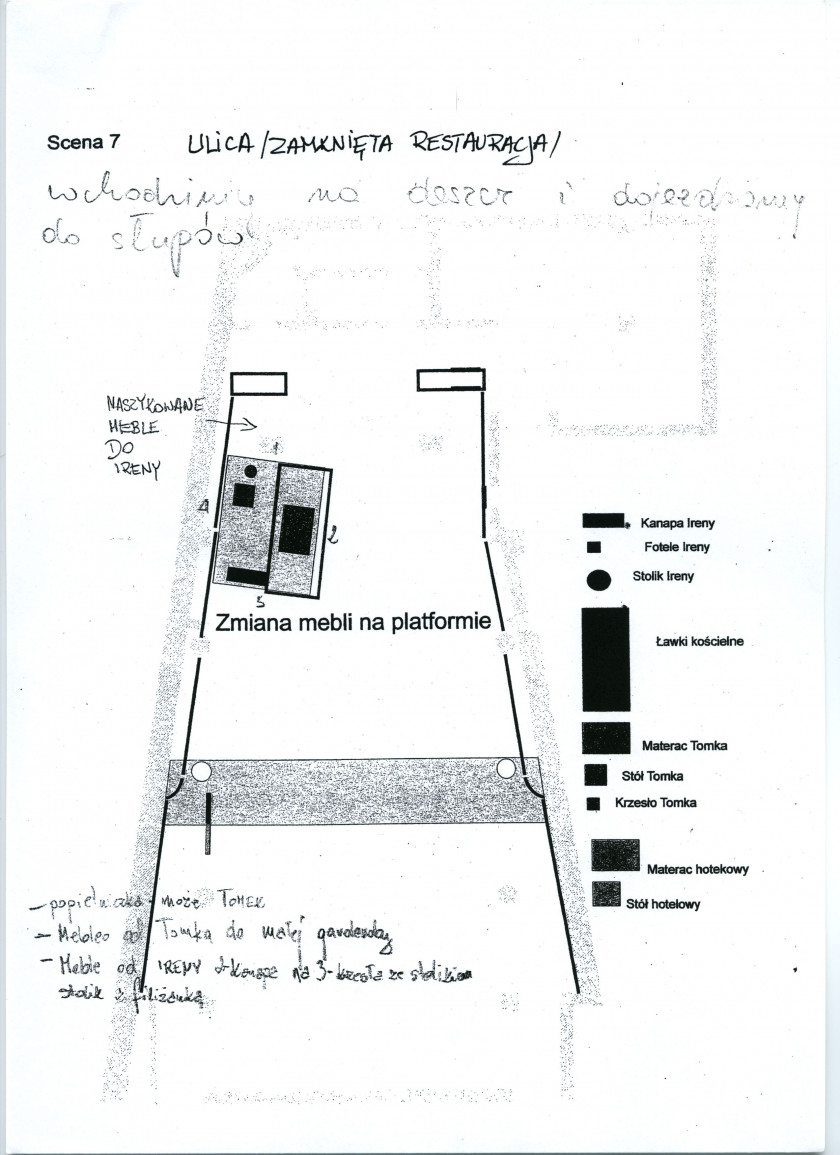 Scena 7 ULICA /ZAMKNIĘTA RESTAURACJA/
na deszcz i dojeżdżamy
do słupów
NASZYKOWANE
MEBLE
DO
IRENY
1
4
2
3
Zmiana mebli na platformie
Kanapa Ireny
Fotele Ireny
Stolik Ireny
Ławki kościelne
Materac Tomka
Stół Tomka
Krzesło Tomka
Materac hotekowy
Stół hotelowy
- popielniczka może TOMEK
- Meble od Tomka do małej garderoby
- Meble od IRENY na 3- ze stolikiem
stolik z filiżanką